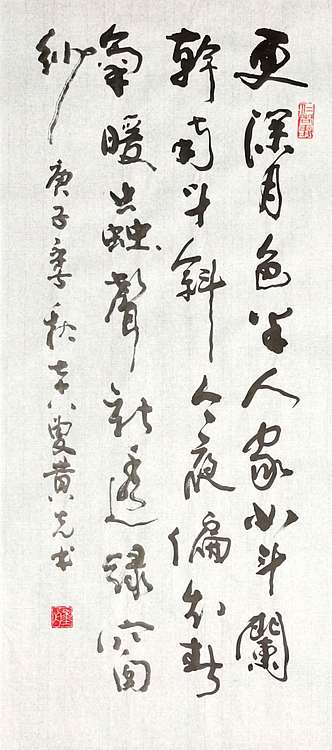 更深月色半人家北斗闌
幹南斗斜今夜偏知春
氣暖蟲聲新透綠窗
紗
庚子季秋七十八叟黄书